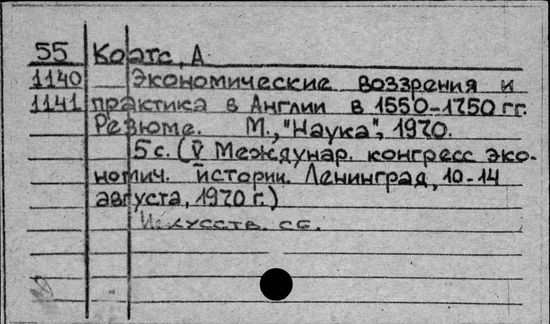 55 Коатс, А.
1140 Экономические воззрения и
1141 практика в Англии в 1550-1750 гг.
Резюме. М., "Наука", 1970.
5 с. (V Междунар. конгресс эко-
номич. истории. Ленинград, 10-14
августа, 1970 г.)
Искусств. сб.